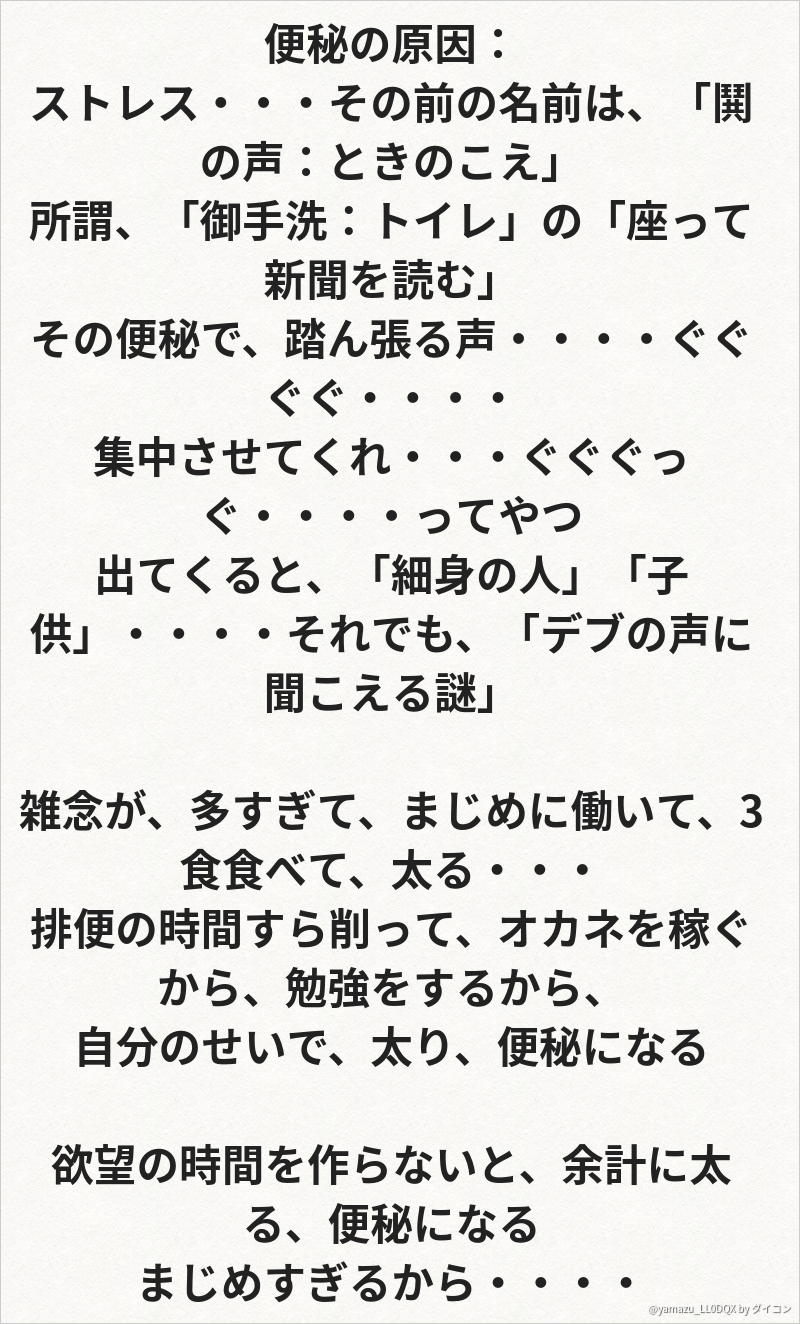 便秘の原因：
ストレス・・・その前の名前は、「鬨
の声：ときのこえ」
所謂、「御手洗：トイレ」の「座って
新聞を読む」
その便秘で、踏ん張る声・・・・ぐぐ
ぐぐ・・・・
集中させてくれ・・・ぐぐぐっ
ぐ・・・・ってやつ
出てくると、「細身の人」「子
供」・・・・それでも、「デブの声に
聞こえる謎」
雑念が、多すぎて、まじめに働いて、3
食食べて、太る・・・
排便の時間すら削って、オカネを稼ぐ
から、勉強をするから、
自分のせいで、太り、便秘になる
欲望の時間を作らないと、余計に太
る、便秘になる
まじめすぎるから・・・・
@yamazu_LL0DQX by ダイコン